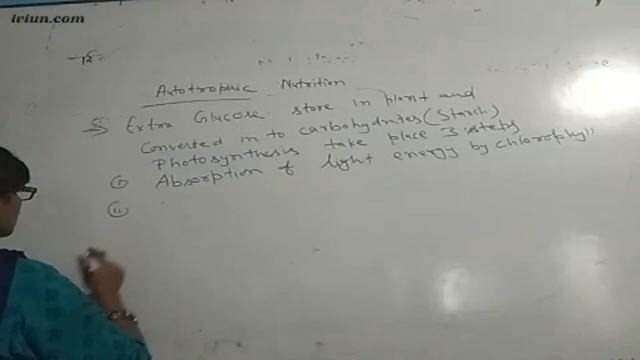 iriun.com
Autotrophic Nutrition
Extra Glucose store in plant and
Converted in to carbohydrates (Starch)
Photosynthesis take place 3 steps
(i) Absorption of light energy by chlorophyll
(ii)